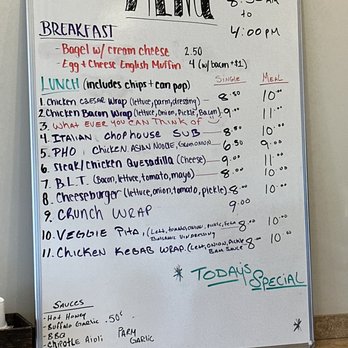 MENU
to
4:00PM
BREAKFAST
- Bagel w/ cream cheese 2.50
- Egg + Cheese English Muffin 4 (w/ bacon + $1)
LUNCH (includes chips + can pop) SINGLE MEAL
1. Chicken CAESAR Wrap (lettuce, parm, dressing) 8.50 10.00
2. Chicken Bacon Wrap (lettuce, Onion, Pickle, Bacon) 9.00 11.00
3. WHAT EVER YOU CAN THINK OF
4. ITALIAN CHOPHOUSE SUB 8.00 10.00
5. PHO (Chicken, ASIAN NOODLE, 6.50 9.00
6. Steak/Chicken Quesadilla (Cheese) 9.00 11.00
7. B.L.T. (Bacon, lettuce, tomato, mayo) 8.00 10.00
8. Cheeseburger (lettuce, onion, tomato, pickle) 8.00 10.00
9. CRUNCH WRAP 9.00
10. VEGGIE PITA, 8.00 10.00
11. CHICKEN KEBAB WRAP (Lett, ONION, PICKLE 8.00 10.00
SAUCE
TODAY'S
SPECIAL
SAUCES
- Hot Honey
- Buffalo Garlic .50¢
- BBQ PARM
- CHIPOTLE Aioli GARLIC